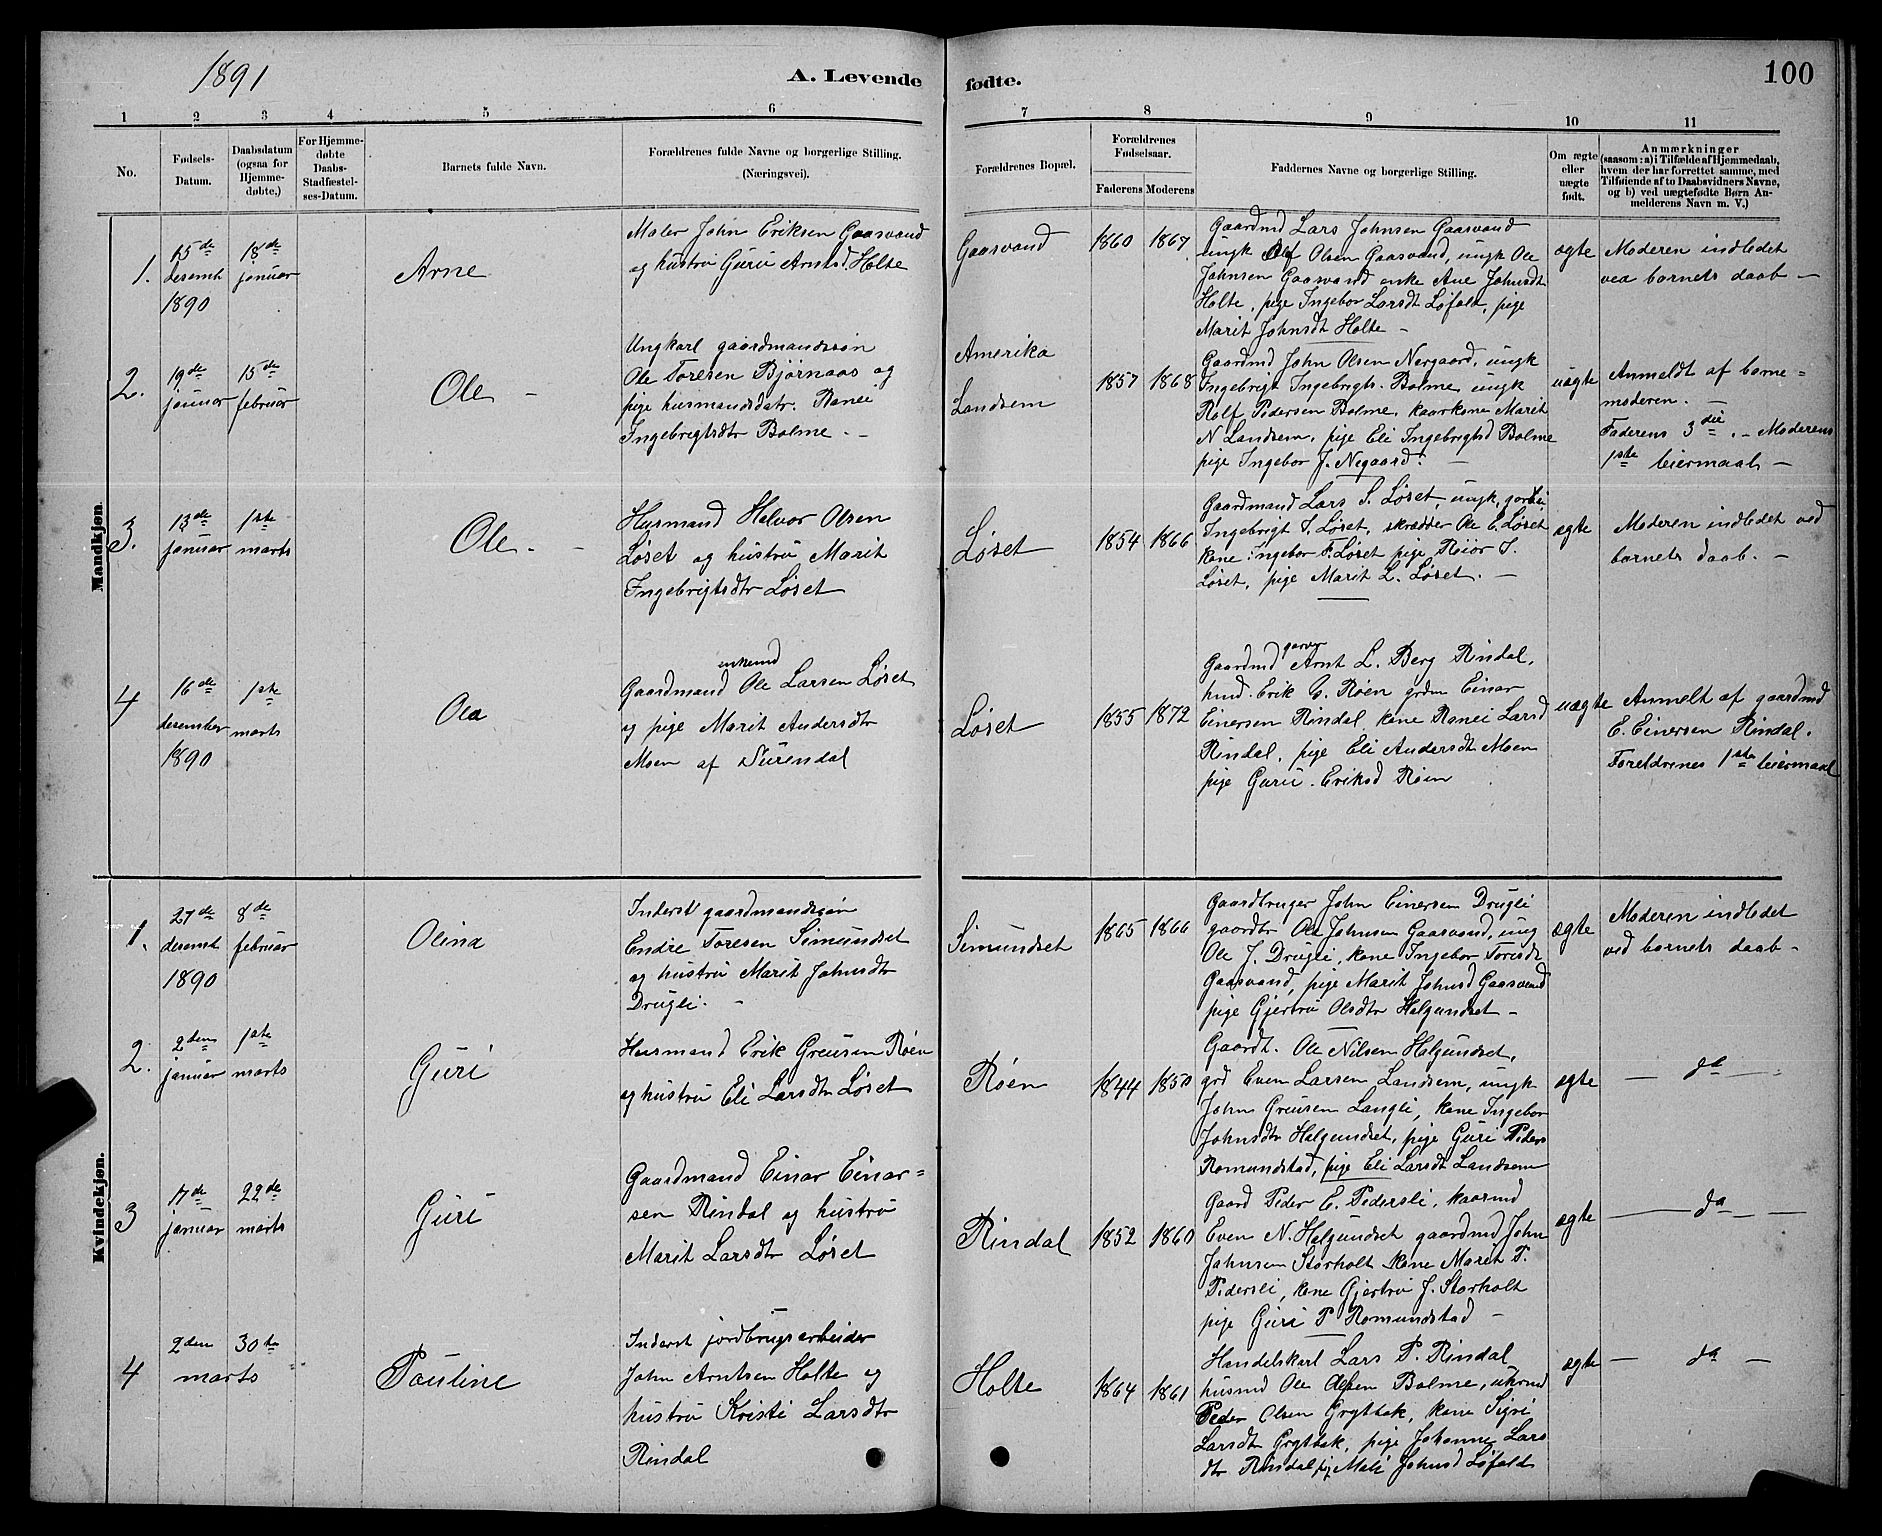 1891
A. Levende fødte.
100
1 2 3 4 5 6 7 8 9 10 11
No.
Fødsels-
Datum.
Daabsdatum
(ogsaa for
Hjemme-
døbte.)
For Hjemme-
døbte
Daabs-
Stadfæstel-
ses-Datum.
Barnets fulde Navn.
Forældrenes fulde Navne og borgerlige Stilling.
(Næringsvei).
Forældrenes Bopæl.
Forældrenes
Fødselsaar.
Faderens Moderens
Faddernes Navne og borgerlige Stilling.
Om ægte
eller
uægte
født.
Anmærkninger
(saasom: a) i Tilfælde af Hjemmedaab,
hvem der har forrettet samme, med
Tilføiende af to Daabsvidners Navne,
og b) ved uægtefødte Børn An-
melderens Navn m. V.)
Mandkjøn.
1.
15de
desembr
1890
18de
januar
Arne
Maler John Eriksen Gaasvand
og hustru Guru Arntsd Holte
Gaasvand
1860 1867
Gaardmd Lars Johnsen Gaasvand
ungk Olsen Gaasvand, ungk Ole
Johnsen Gaasvand enke Ane Johnsdt
Holte, pige Ingebor Larsdt Løfald, pige
Marit Johnsdt Holte –
ægte
Moderen indledet
ved barnets daab –
2.
19de
januar
15de
februar
Ole –
Ungkarl gaardmandssøn
Ole Toresen Bjørnaas og
pige husmandsdatr. Ranei
Ingebrigtsdtr Bolme. –
Amerika
Landsem
1857 1868
Gaardmd John Olsen Nergaard, ungk
Ingebrigt Ingebrigts. Bolme, ungk
Rolf Pedersen Bolme, kaarkone Marit
N Landsem, pige Eli Ingebrigtsd Bolme
pige Ingebor J. Negaard. –
uægte
Anmeldt af barne=
moderen. –
Faderens 3die. – Moderens
1ste leiermaal –
3.
13de
januar
1ste
marts
Ole. –
Husmand Halvor Olsen
Løset og hustru Marit
Ingebrigtsdtr Løset
Løset
1854 1866
Gaardmand Lars S. Løset, ungk,
Ingebrigt S. Løset, skrædder Ole E. Løset
kone Ingebor F. Løset pige
Løset, pige Marit L. Løset. –
ægte
Moderen indledet ved
barnets daab. –
4
16de
desember
1890
1ste
marts
Ola
enkemd
Gaardmand Ole Larsen Løset
og pige Marit Andersdtr
Moen af Surendal
Løset
1855 1872
garver
Gaardmd Arnt L. Berg Rindal,
husd. Erik G. Røen grdm Einar
Einersen Rindal, kone Ranei Larsd
Rindal, pige Eli Andersdt Moen
pige Guru. Eriksd Røen
uægte
Anmelt af gaardmd
E. Einersen Rindal.
Foreldrenes 1ste leiermaal
Kvindekjøn.
1.
27de
desembr
1890
8de
februar
Olina
Inderst gaardmandssøn
Endre Toresen Simundset
og hustru Marit Johnsdtr
Drugli. –
Simundset
1865 1866
Gaardbruger John Einersen Drugli
gaardbr Ole Johnsen Gaasvand, ung
Ole J. Drugli, kone Ingebor Toresdt
Gaasvand, pige Marit Johnsd Gaasvand
pige Gjertru Olsdtr Halgundset –
ægte
Moderen indledet
ved barnets daab –
2.
2den
januar
1ste
marts
Guri
Husmand Erik Greusen Røen
og hustru Eli Larsdtr Løset
Røen
1844 1850
Gaardt. Ole Nilsen Halgundset,
grd Even Larsen Landsem, ungk
John Greusen Langli, kone Ingebor
Johnsdtr Halgundset, pige Guri Peders
Romundstad, pige Eli Larsdt Landsem
ægte
– da –
3
17de
januar
22de
marts
Guri
Gaardmand Einar Einar=
sen Rindal og hustru
Marit Larsdtr Løset
Rindal
1852 1860
Gaard Peder E. Pedersli, kaarmd
Even N. Halgundset gaardmd John
Johnsen Storholt kone Marit P.
Pedersli, kone Gjertru J. Storholt
pige Guri P Romundstad –
ægte
– da –
4
2den
marts
30te
Pauline
Inderst jordbrugsarbeider
John Arntsen Holte og
hustru Kristi Larsdtr
Rindal
Holte
1864 1861
Handelskarl Lars P. Rindal
husmd Ole Olsen Bolme,
Peder Olsen Gryttbak, kone Sigri
Larsdt Gryttbak, pige Johanne Lars
dtr Rindal pig Mali Johnsd Løfald
ægte
– da –